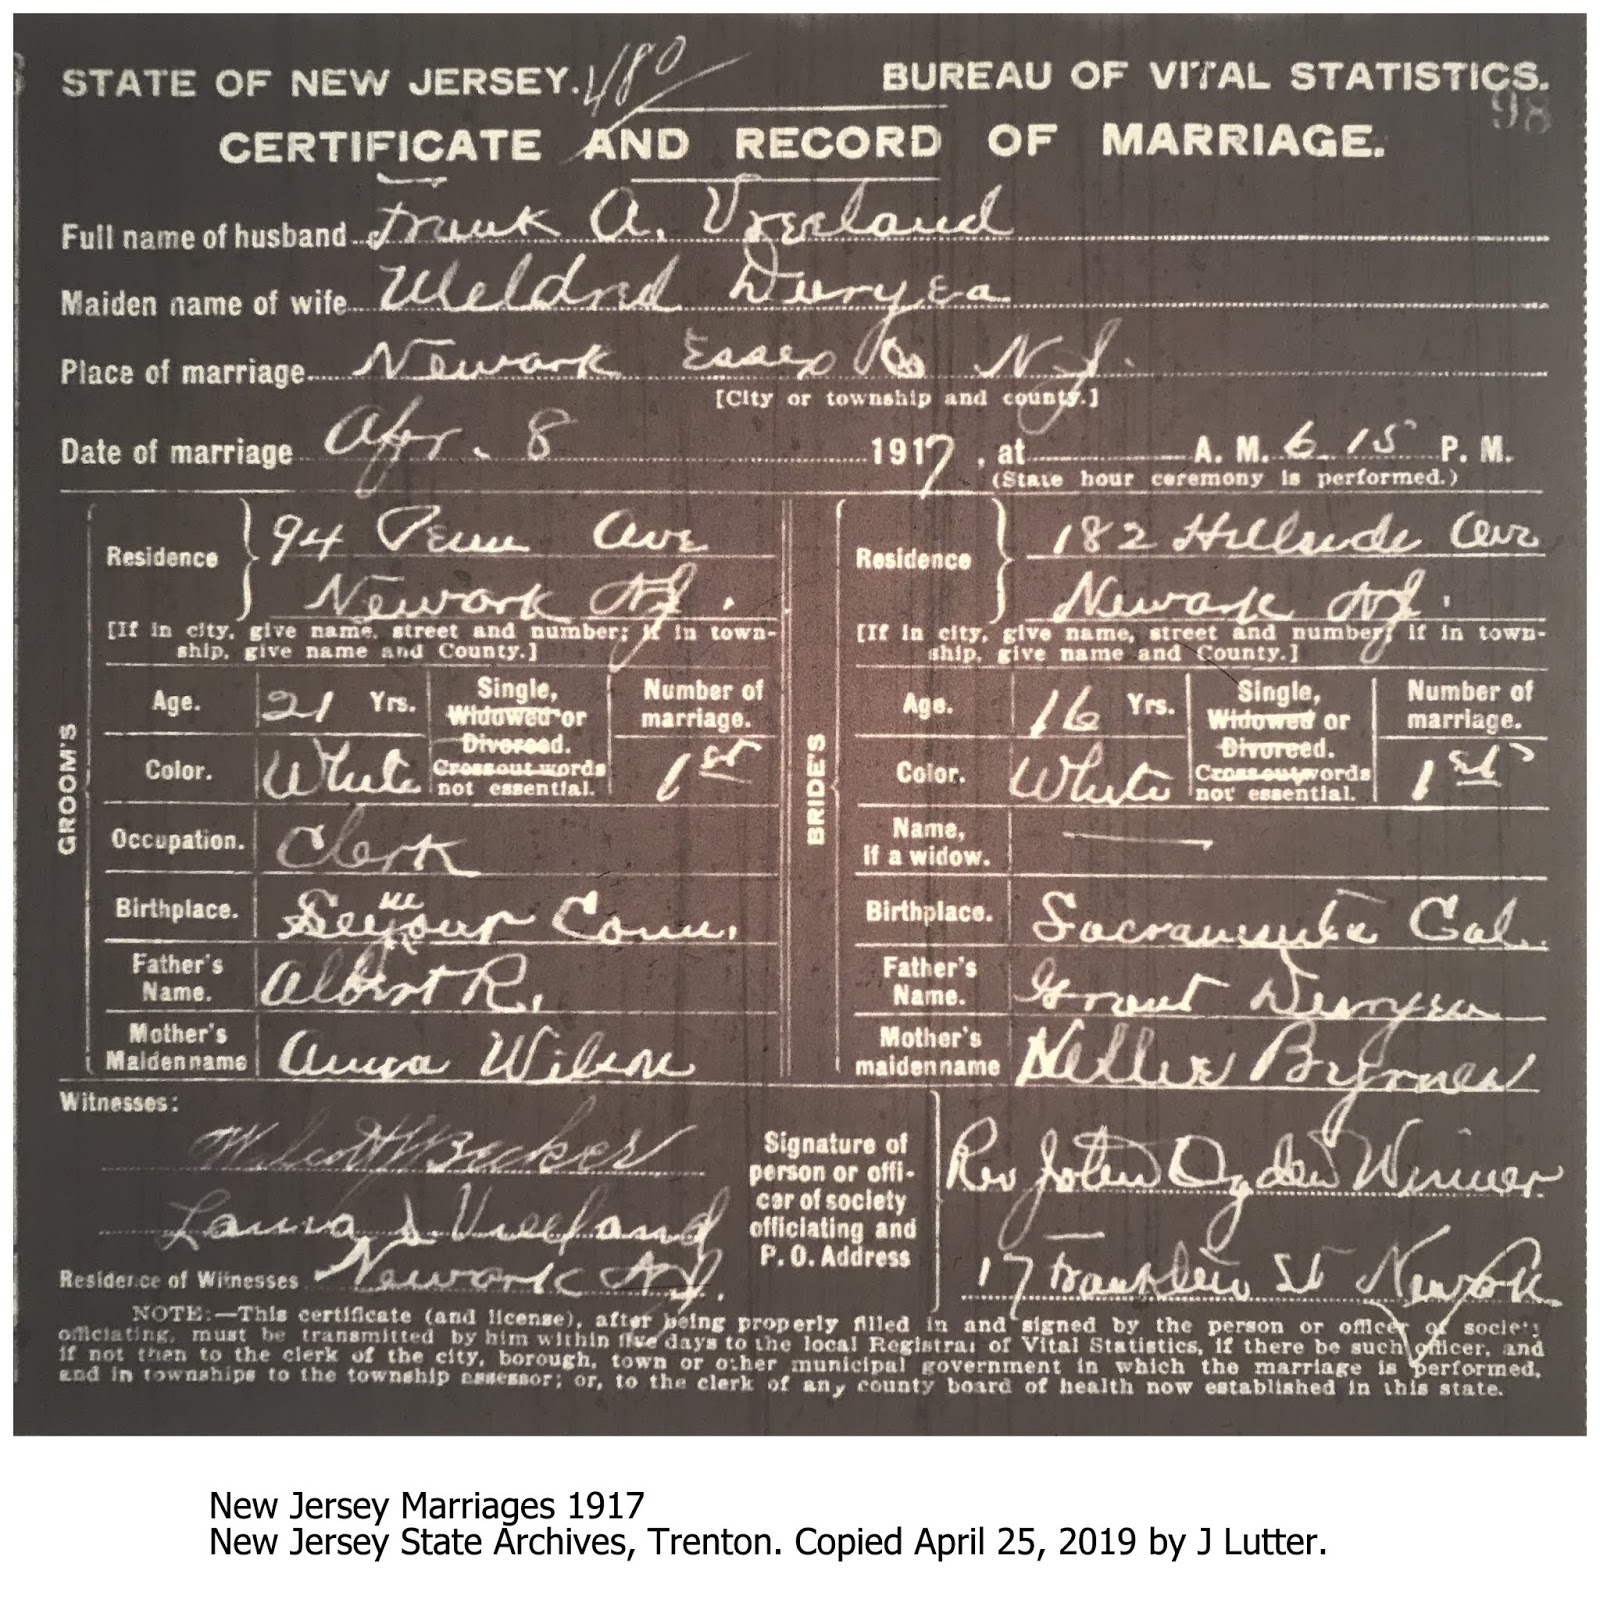 STATE OF NEW JERSEY. 480 BUREAU OF VITAL STATISTICS.
98
CERTIFICATE AND RECORD OF MARRIAGE.
Full name of husband Frank A. Vreeland
Maiden name of wife Meldred Duryea
Place of marriage Newark Essex Co N.J.
[City or township and county.]
Date of marriage Apr. 8 1917, at A. M. 6 15 P. M.
(State hour ceremony is performed.)
GROOM'S
Residence 94 Penn Ave
Newark NJ.
[If in city, give name, street and number; if in town-
ship, give name and County.]
Age. 21 Yrs.
Single, Widowed or Divorced.
Cross out words not essential.
Number of marriage. 1st
Color. White
Occupation. Clerk
Birthplace. Seymour Conn.
Father's Name. Albert R.
Mother's Maiden name Anna Wilson
BRIDE'S
Residence 182 Hillside Ave
Newark NJ.
[If in city, give name, street and number; if in town-
ship, give name and County.]
Age. 16 Yrs.
Single, Widowed or Divorced.
Cross out words not essential.
Number of marriage. 1st
Color. White
Name, If a widow.
Birthplace. Sacramento Cal.
Father's Name. Grant Duryea
Mother's maiden name Nellie Byrnes
Witnesses:
Becker
Laura Vreeland
Residence of Witnesses Newark NJ.
Signature of
person or offi-
cer of society
officiating and
P. O. Address
Rev John Ogden Winner
17 Franklin St Newark
NOTE:—This certificate (and license), after being properly filled in and signed by the person or officer of society
officiating, must be transmitted by him within five days to the local Registrar of Vital Statistics, if there be such officer, and
if not then to the clerk of the city, borough, town or other municipal government in which the marriage is performed,
and in townships to the township assessor; or, to the clerk of any county board of health now established in this state.
New Jersey Marriages 1917
New Jersey State Archives, Trenton. Copied April 25, 2019 by J Lutter.